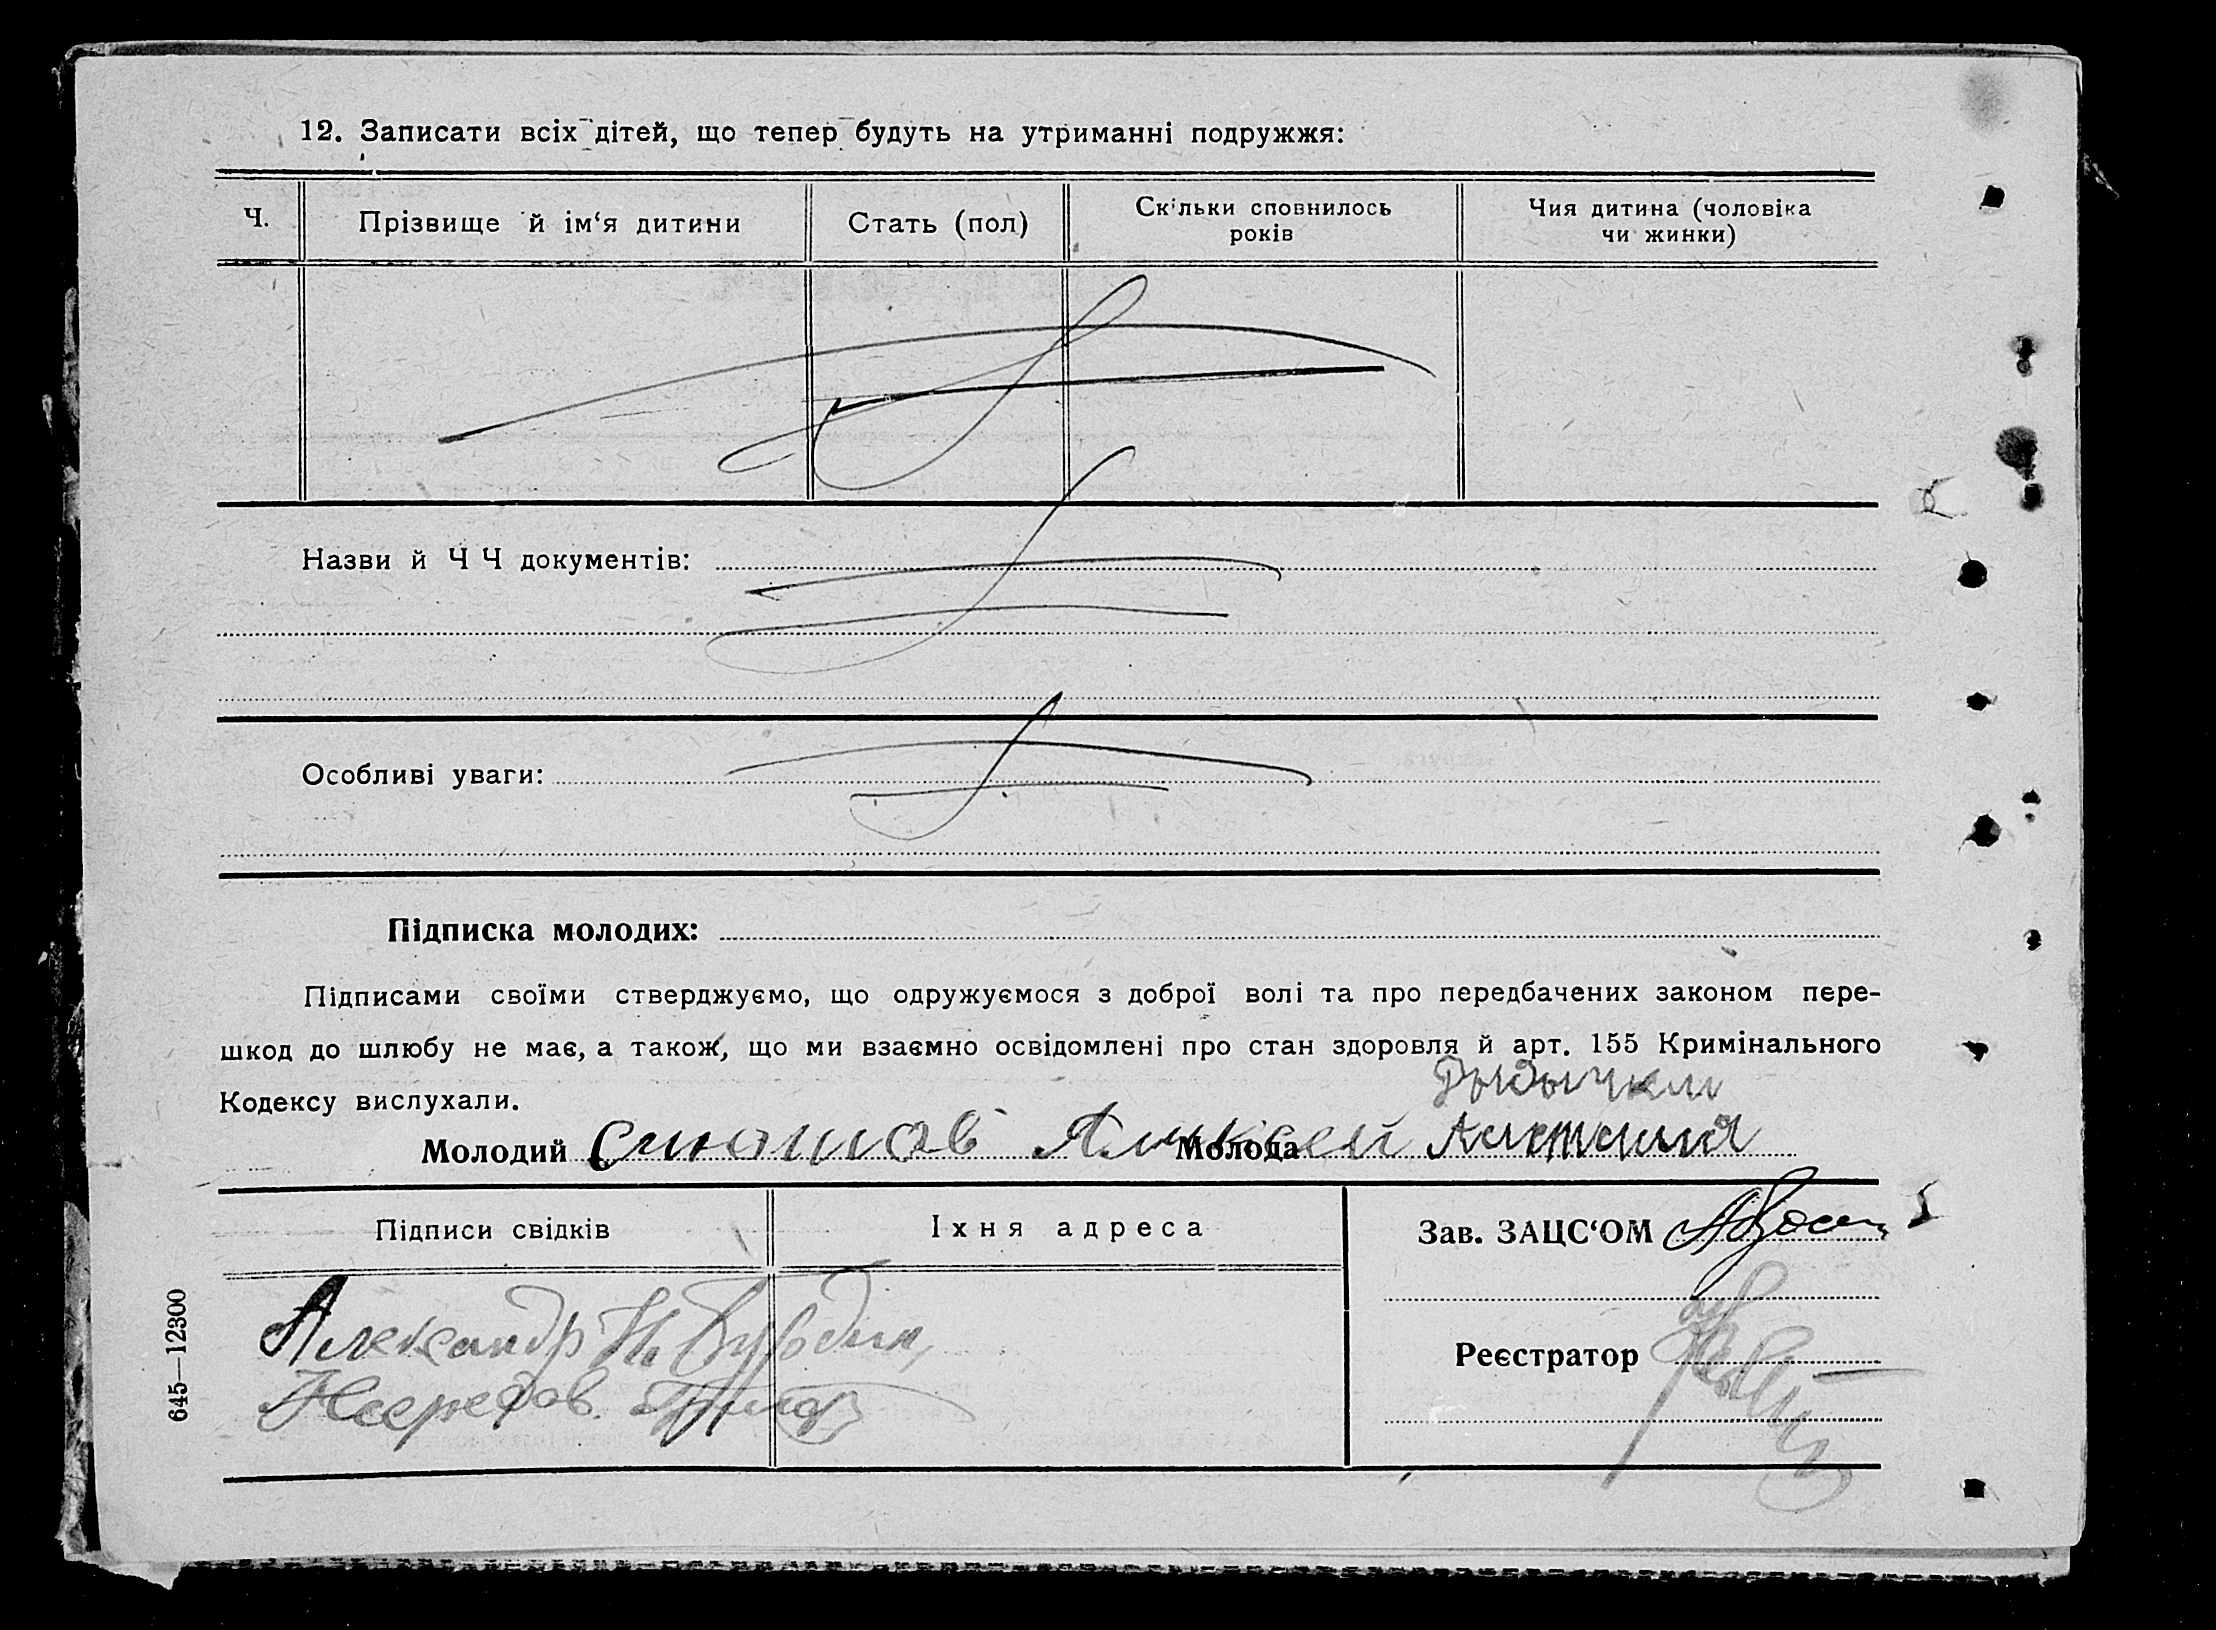 12. Записати всіх дітей, що тепер будуть на утриманні подружжя:
Ч.
Прізвище й ім‘я дитини
Стать (пол)
Скільки сповнилось
років
Чия дитина (чоловіка
чи жинки)
Назви й Ч Ч документів:
Особливі уваги:
Підписка молодих:
Підписами своїми стверджуємо, що одружуємося з доброї волі та про передбачених законом пере-
шкод до шлюбу не має, а також, що ми взаємно освідомлені про стан здоровля й арт. 155 Кримінального
Кодексу вислухали.
Молодий Алексей Молода
Підписи свідків
Їхня адреса
Зав. ЗАЦС‘ОМ
Александр Н. Бурдин,
Реєстратор
645—12300